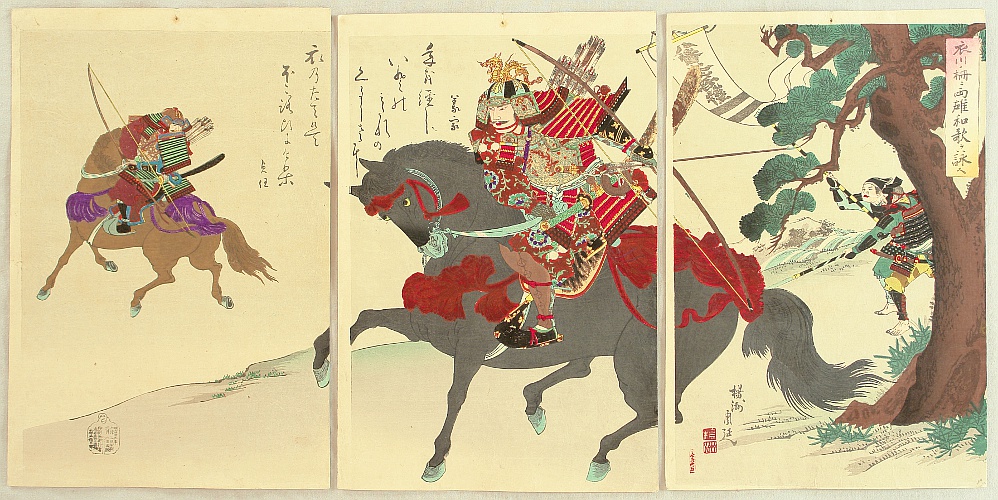 衣川柵両雄和歌ヲ詠ス
楊洲周延
義家
年を經し
いとの
みだれの
くるしさに
衣乃たては
ほころびにけり
貞任